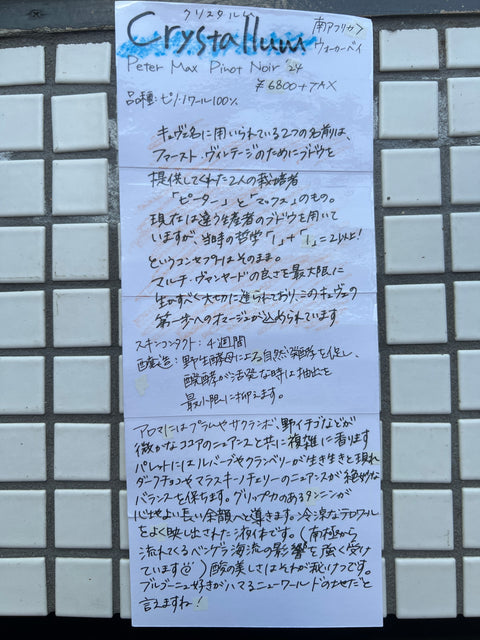 クリスタルム
Crystallum
南アフリカ
ウォーカーベイ
Peter Max Pinot Noir '24
¥6800+TAX
品種:ピノ・ノワール100%
キュヴェ名に用いられている2つの名前は、
ファースト・ヴィンテージのためにブドウを
提供してくれた2人の栽培者
「ピーター」と「マックス」のもの。
現在は違う生産者のブドウを用いて
いますが、当時の哲学「1」+「1」=2以上!
というコンセプトはそのまま。
マルチ・ヴィンヤードの良さを最大限に
生かすべく大切に造られており、このキュヴェの
第一歩へのオマージュが込められています
スキンコンタクト:4週間
醸造:野生酵母による自然発酵を促し、
醗酵が活発な時は抽出を
最小限に抑えます。
アロマにはプラムやサクランボ、野イチゴなどが
微かなココアのニュアンスと共に複雑に香ります
パレットにはルバーブやクランベリーが生き生きと現れ
ダークチョコやマラスキーノチェリーのニュアンスが絶妙な
バランスを保ちます。グリップ力のあるタンニンが
心地よい長い余韻へと導きます。冷涼なテロワール
をよく映し出された液体です。(南極から
流れてくるベンゲラ海流の影響を強く受け
ています)酸の美しさはそれが秘けつです。
ブルゴーニュ好きがハマるニューワールドのだと
言えますね!